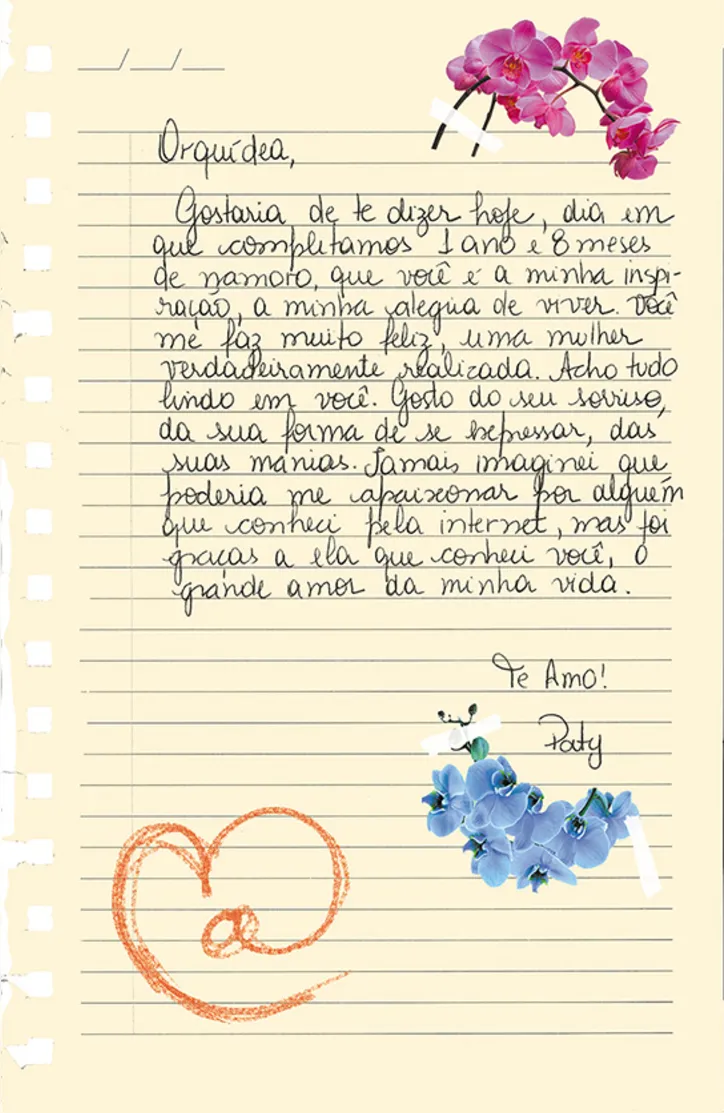 Orquídea,
Gostaria de te dizer hoje, dia em
que completamos 1 ano e 8 meses
de namoro, que você é a minha inspi-
ração, a minha alegria de viver. Você
me faz muito feliz, uma mulher
verdadeiramente realizada. Acho tudo
lindo em você. Gosto do seu sorriso,
da sua forma de se expressar, das
suas manias. Jamais imaginei que
poderia me apaixonar por alguém
que conheci pela internet, mas foi
graças a ela que conheci você, o
grande amor da minha vida.
Te Amo!
Paty